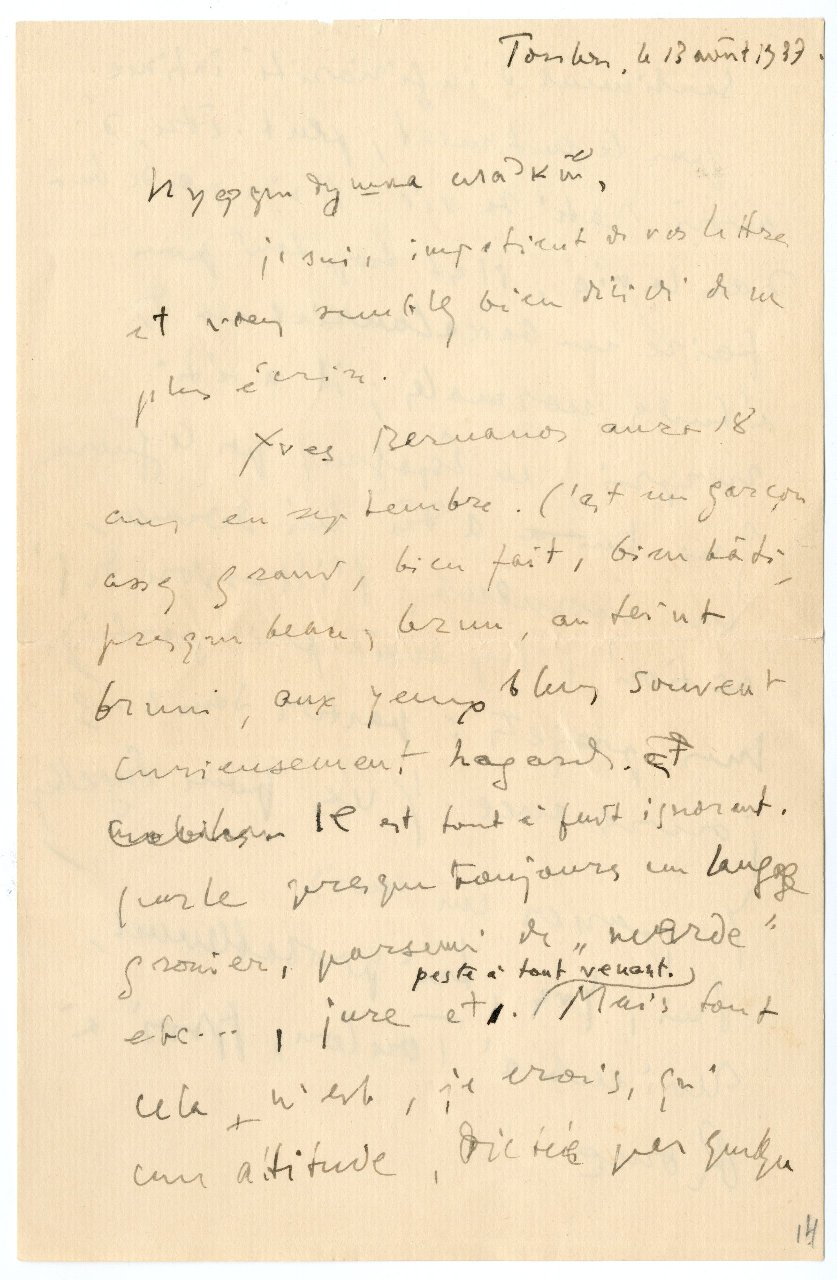 Toulon, le 13 août 1937.
душка сладкий,
je suis impatient de vos lettres
et vous semblez bien décidé de ne
plus écrire.
Yves Bernanos aura 18
ans en septembre. C'est un garçon
assez grand, bien fait, bien bâti,
presque beau, brun, au teint
bruni, aux yeux bleus souvent
curieusement hagards. et
Il est tout à fait ignorant.
parle presque toujours un langage
grossier, parsemi de „merde"
peste à tout venant.
etc..., jure et. Mais tout
cela n'est, je crois, qu'
une attitude, dictée par quelque
14